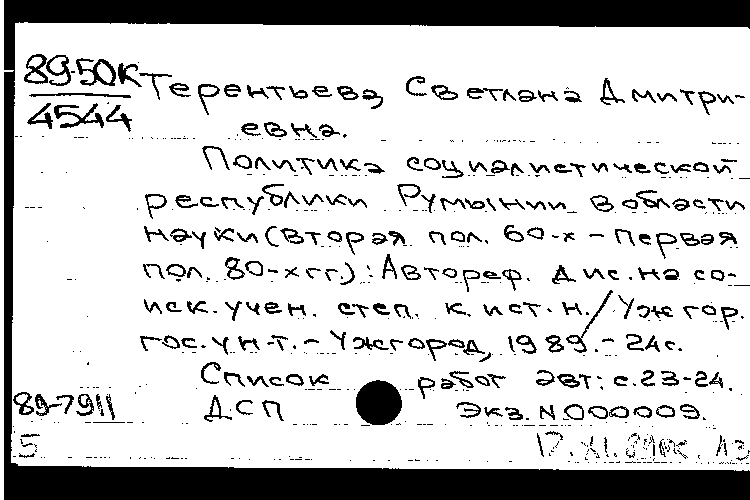 89-50к
4544
Терентьева, Светлана Дмитри-
евна.
Политика социалистической
республики Румынии в области
науки (вторая пол. 60-х - первая
пол. 80-х гг.): Автореф. дис. на со-
иск. учен. степ. к. ист. н. / Ужгор.
гос. ун-т. - Ужгород, 1989. - 24с.
Список работ авт: с. 23-24.
89-7911 ДСП Экз. N 000009.
5 17.XI.89